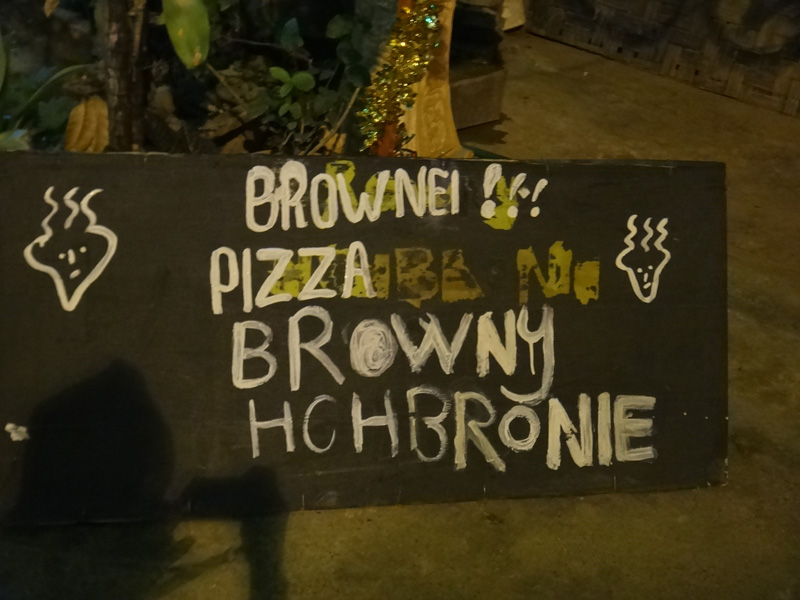 BROWNEI !!!
PIZZA
BROWNY
HCHBRONIE